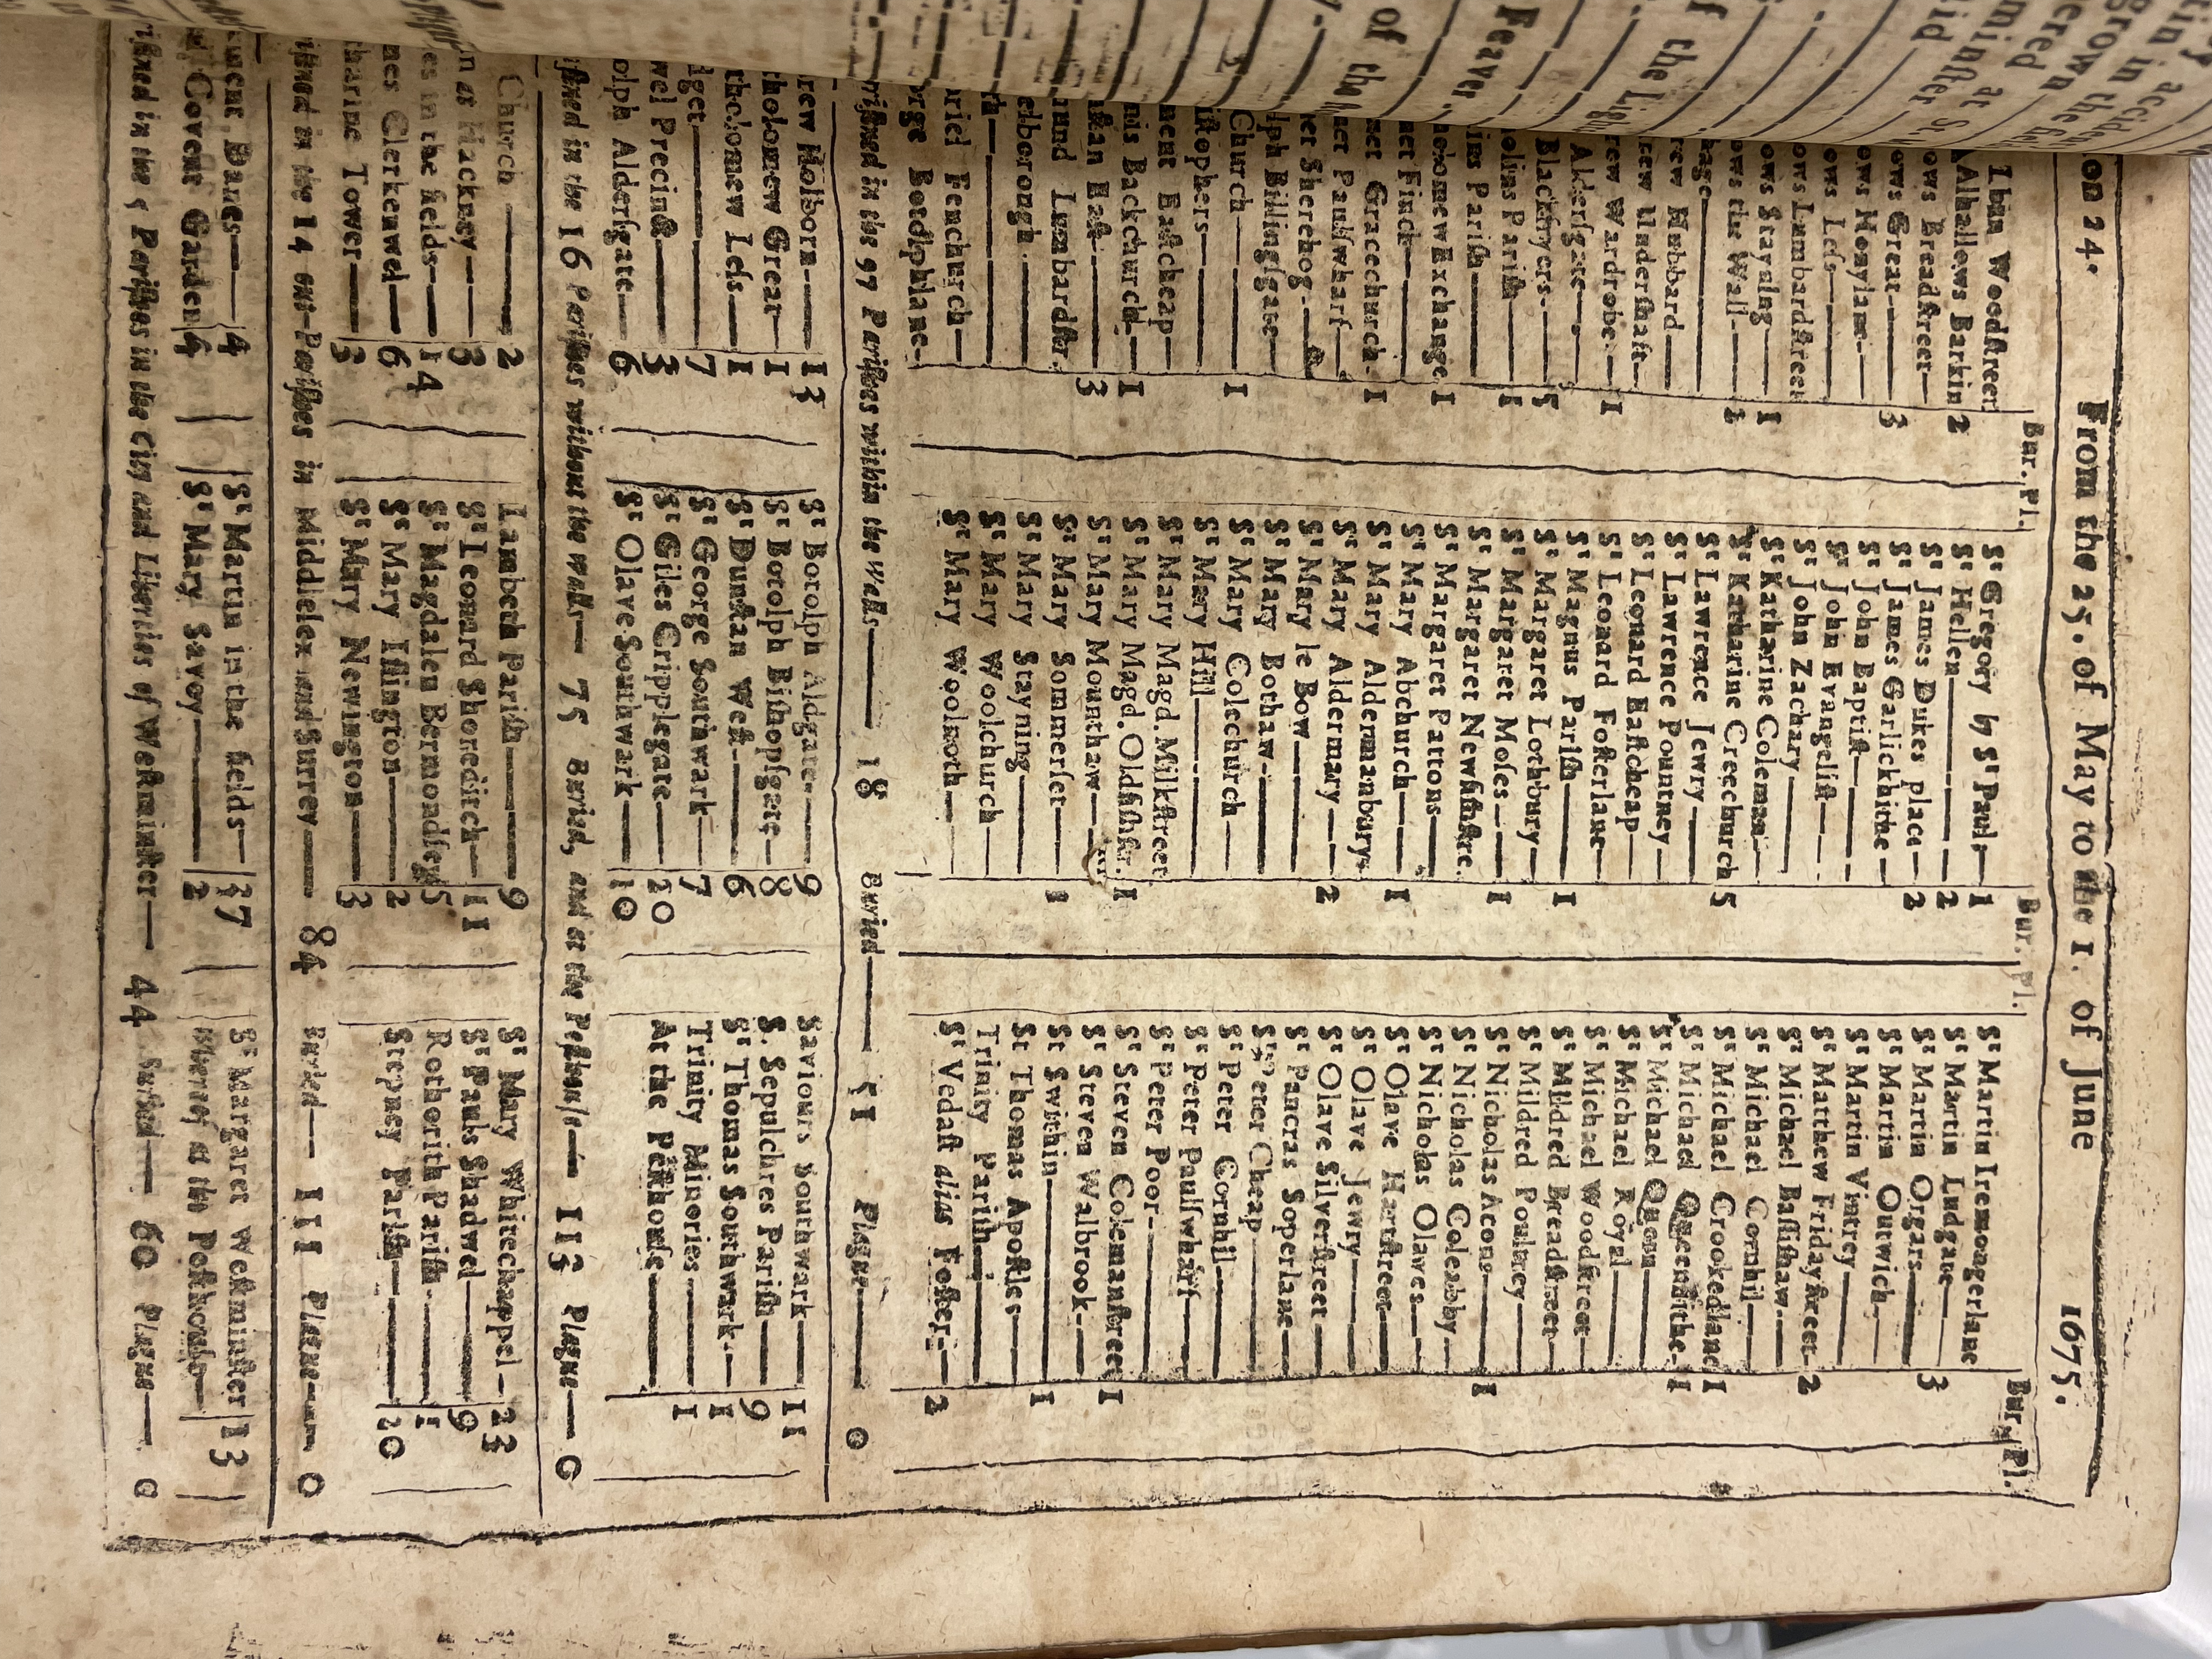 on 24. From the 25. of May to the 1. of June 1675.
Bur. Pl. Bur. Pl. Bur. Pl.
lban Woodſtreet
Alhallows Barkin 2
ows Breadſtreet
ows Great 3
ows Honylane
ows Leſs
ows Lumbardſtreet
ows Stayning 1
ows the Wall 1
hage
rew Hubbard
rew Underſhaft
rew Wardrobe 1
Alderſgate
Blackfryers 5
olins Pariſh 1
ins Pariſh
holomew Exchange 1
net Finck
net Gracechurch 1
net Paulſwharf
net Sherehog
lph Billingſgate
Church 1
iſtophers
ment Eaſtcheap
nis Backchurch 1
ſtan Eaſt 3
mund Lumbardſtr.
elborough
th
riel Fenchurch
orge Botolphlane
Sᵗ Gregory by Sᵗ Paul 1
Sᵗ Hellen 2
Sᵗ James Dukes place 2
Sᵗ James Garlickhithe
Sᵗ John Baptiſt
Sᵗ John Evangeliſt
Sᵗ John Zachary
Sᵗ Katharine Coleman
Sᵗ Katharine Creechurch 5
Sᵗ Lawrence Jewry
Sᵗ Lawrence Pountney
Sᵗ Leonard Eaſtcheap
Sᵗ Leonard Foſterlane
Sᵗ Magnus Pariſh 1
Sᵗ Margaret Lothbury
Sᵗ Margaret Moſes 1
Sᵗ Margaret Newfiſhſtre.
Sᵗ Margaret Pattons
Sᵗ Mary Abchurch 1
Sᵗ Mary Aldermanbury
Sᵗ Mary Aldermary 2
Sᵗ Mary le Bow
Sᵗ Mary Bothaw
Sᵗ Mary Colechurch
Sᵗ Mary Hill
Sᵗ Mary Magd. Milkſtreet
Sᵗ Mary Magd. Oldfiſhſtr. 1
Sᵗ Mary Mounthaw
Sᵗ Mary Sommerſet 1
Sᵗ Mary Stayning
Sᵗ Mary Woolchurch
Sᵗ Mary Woolnoth
Sᵗ Martin Iremongerlane
Sᵗ Martin Ludgate 3
Sᵗ Martin Orgars
Sᵗ Martin Outwich
Sᵗ Martin Vintrey
Sᵗ Matthew Fridayſtreet 2
Sᵗ Michael Baſſiſhaw
Sᵗ Michael Cornhil
Sᵗ Michael Crookedlane 1
Sᵗ Michael Queenhithe 1
Sᵗ Michael Quern
Sᵗ Michael Royal
Sᵗ Michael Woodſtreet
Sᵗ Mildred Breadſtreet
Sᵗ Mildred Poultrey
Sᵗ Nicholas Acons 1
Sᵗ Nicholas Coleabby
Sᵗ Nicholas Olaves
Sᵗ Olave Hartſtreet
Sᵗ Olave Jewry
Sᵗ Olave Silverſtreet
Sᵗ Pancras Soperlane
Sᵗ Peter Cheap
Sᵗ Peter Cornhil
Sᵗ Peter Paulſwharf
Sᵗ Peter Poor
Sᵗ Steven Colemanſtreet 1
Sᵗ Steven Walbrook
St Swithin 1
St Thomas Apoſtles
Trinity Pariſh
Sᵗ Vedaſt alias Foſter 2
riſtned in the 97 Pariſhes within the Walls 18 Buried 51 Plague 0
rew Holborn 13
tholomew Great 1
tholomew Leſs 1
dget 7
wel Precinct 3
olph Alderſgate 6
Sᵗ Botolph Aldgate 9
Sᵗ Botolph Biſhopſgate 8
Sᵗ Dunſtan Weſt 6
Sᵗ George Southwark 7
Sᵗ Giles Cripplegate 20
Sᵗ Olave Southwark 10
Saviours Southwark 11
S. Sepulchres Pariſh 9
Sᵗ Thomas Southwark 1
Trinity Minories 1
At the Peſthouſe
iſtned in the 16 Pariſhes without the walls 75 Buried, and at the Peſthouſe 113 Plague 0
Church 2
n at Hackney 3
es in the fields 14
nes Clerkenwel 6
harine Tower 3
Lambeth Pariſh 9
Sᵗ Leonard Shoreditch 11
Sᵗ Magdalen Bermondſey 5
Sᵗ Mary Iſlington 2
Sᵗ Mary Newington 3
Sᵗ Mary Whitechappel 23
Sᵗ Pauls Shadwel 9
Rothorith Pariſh 1
Stepney Pariſh 20
iſtned in the 14 out-Pariſhes in Middleſex and Surrey 84 Buried 111 Plague 0
ment Danes 4
Covent Garden 4
Sᵗ Martin in the fields 27
Sᵗ Mary Savoy 2
Sᵗ Margaret Weſtminſter 13
Whereof at the Peſthouſe
iſtned in the 5 Pariſhes in the City and Liberties of Weſtminſter 44 Buried 60 Plague 0
of the
Feaver,
f the Ligh